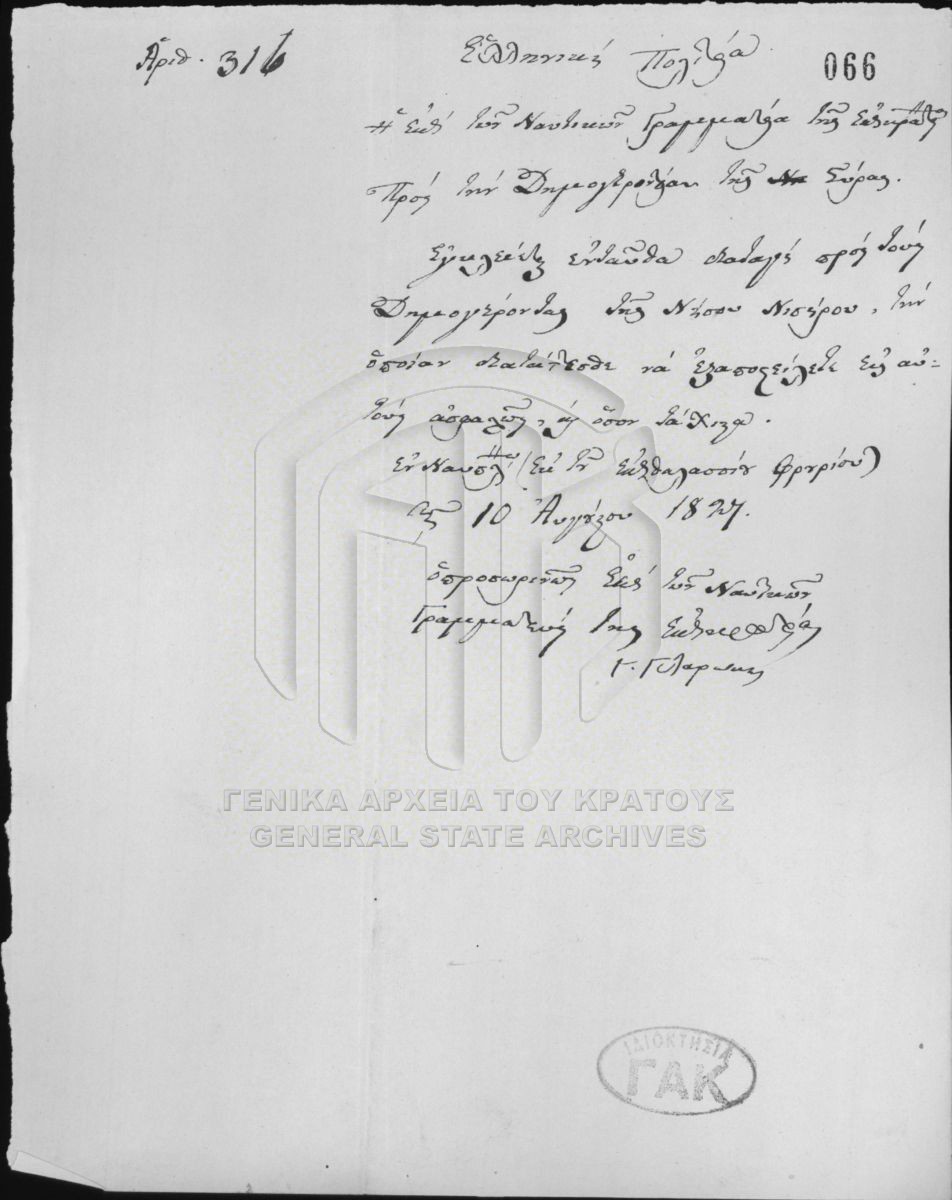 Ἀριθ. 316
Ἑλληνικὴ Πολιτεία
066
Ἡ ἐπὶ τῶν Ναυτικῶν Γραμματεία τῆς Ἐπικρατείας
Πρὸς τὴν Δημογεροντίαν τῆς Σύρας.
Ἐγκλείεται ἐνταῦθα διαταγὴ πρὸς τοὺς
Δημογέροντας τῆς Νήσου Νισύρου, τὴν
ὁποίαν διατάττεσθε νὰ ἐξαποστείλετε εἰς αὐ-
τοὺς ἀσφαλῶς, ἐν ὅσον τάχιστα.
Ἐν Ναυπλίῳ (ἐκ τοῦ ἐπιθαλασσίου φρουρίου)
τῇ 10 Αὐγούστου 1827.
ὁ προσωρινῶς ἐπὶ τῶν Ναυτικῶν
Γραμματεὺς τῆς Ἐπικρατείας
Γ. Γλαράκης
ΓΕΝΙΚΑ ΑΡΧΕΙΑ ΤΟΥ ΚΡΑΤΟΥΣ
GENERAL STATE ARCHIVES
ΙΔΙΟΚΤΗΣΙΑ
ΓΑΚ